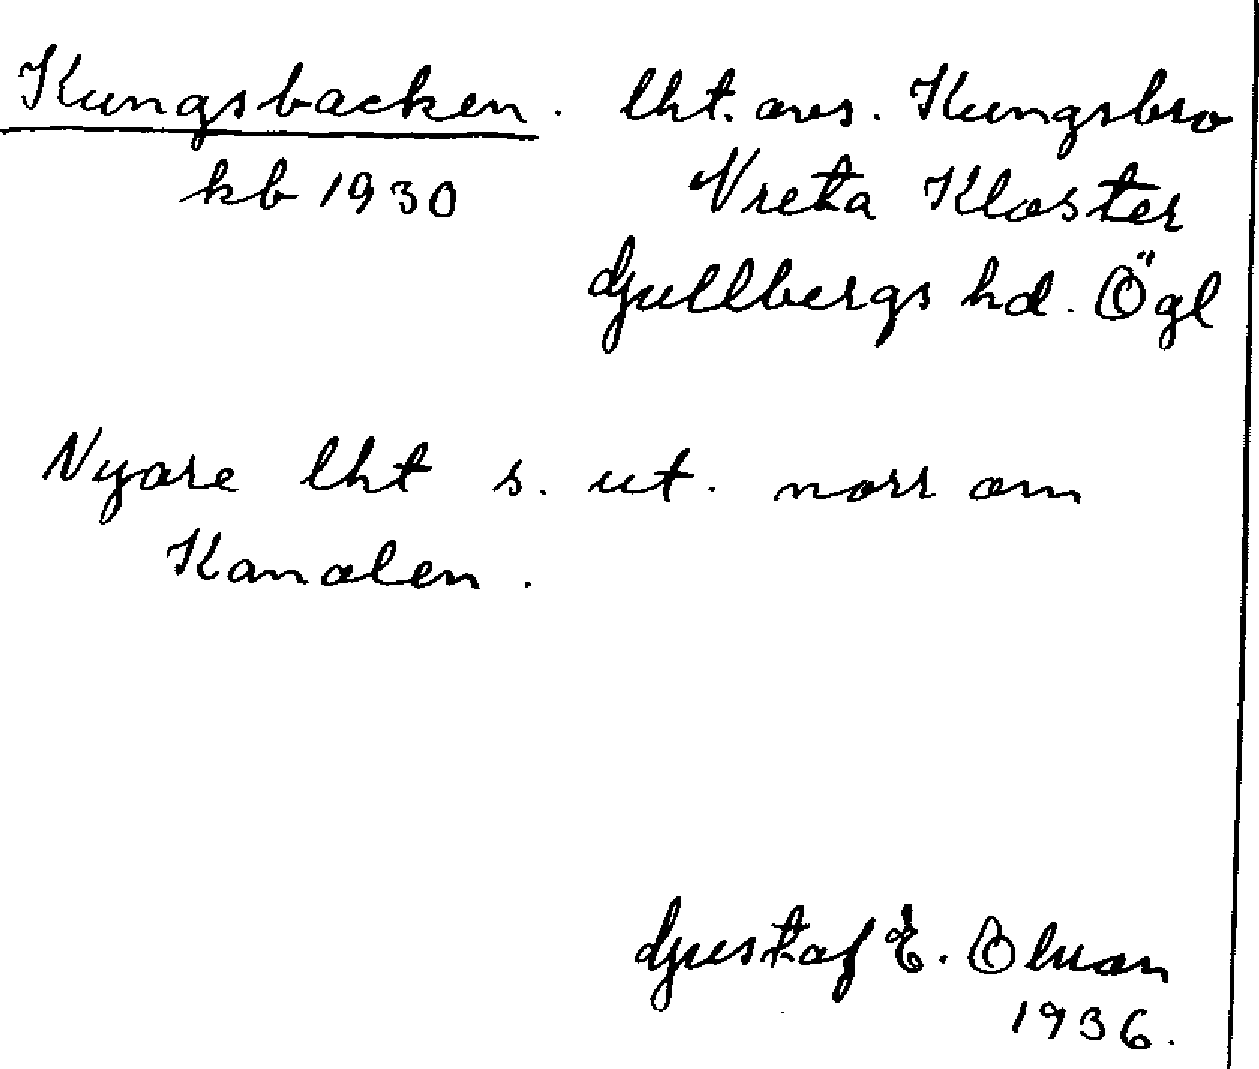 Kungsbacken. lht. avs. Kungsbro
kb 1930 Vreta Kloster
Gullbergs hd. Ögl
Nyare lht s. ut. norr om
Kanalen.
Gustaf E. Olman
1936.